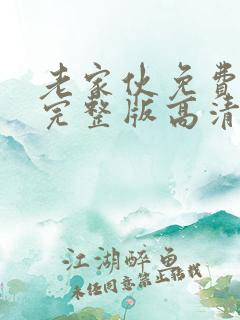 老家伙免费
完整版高清
江湖醉鱼
未经同意禁止转载